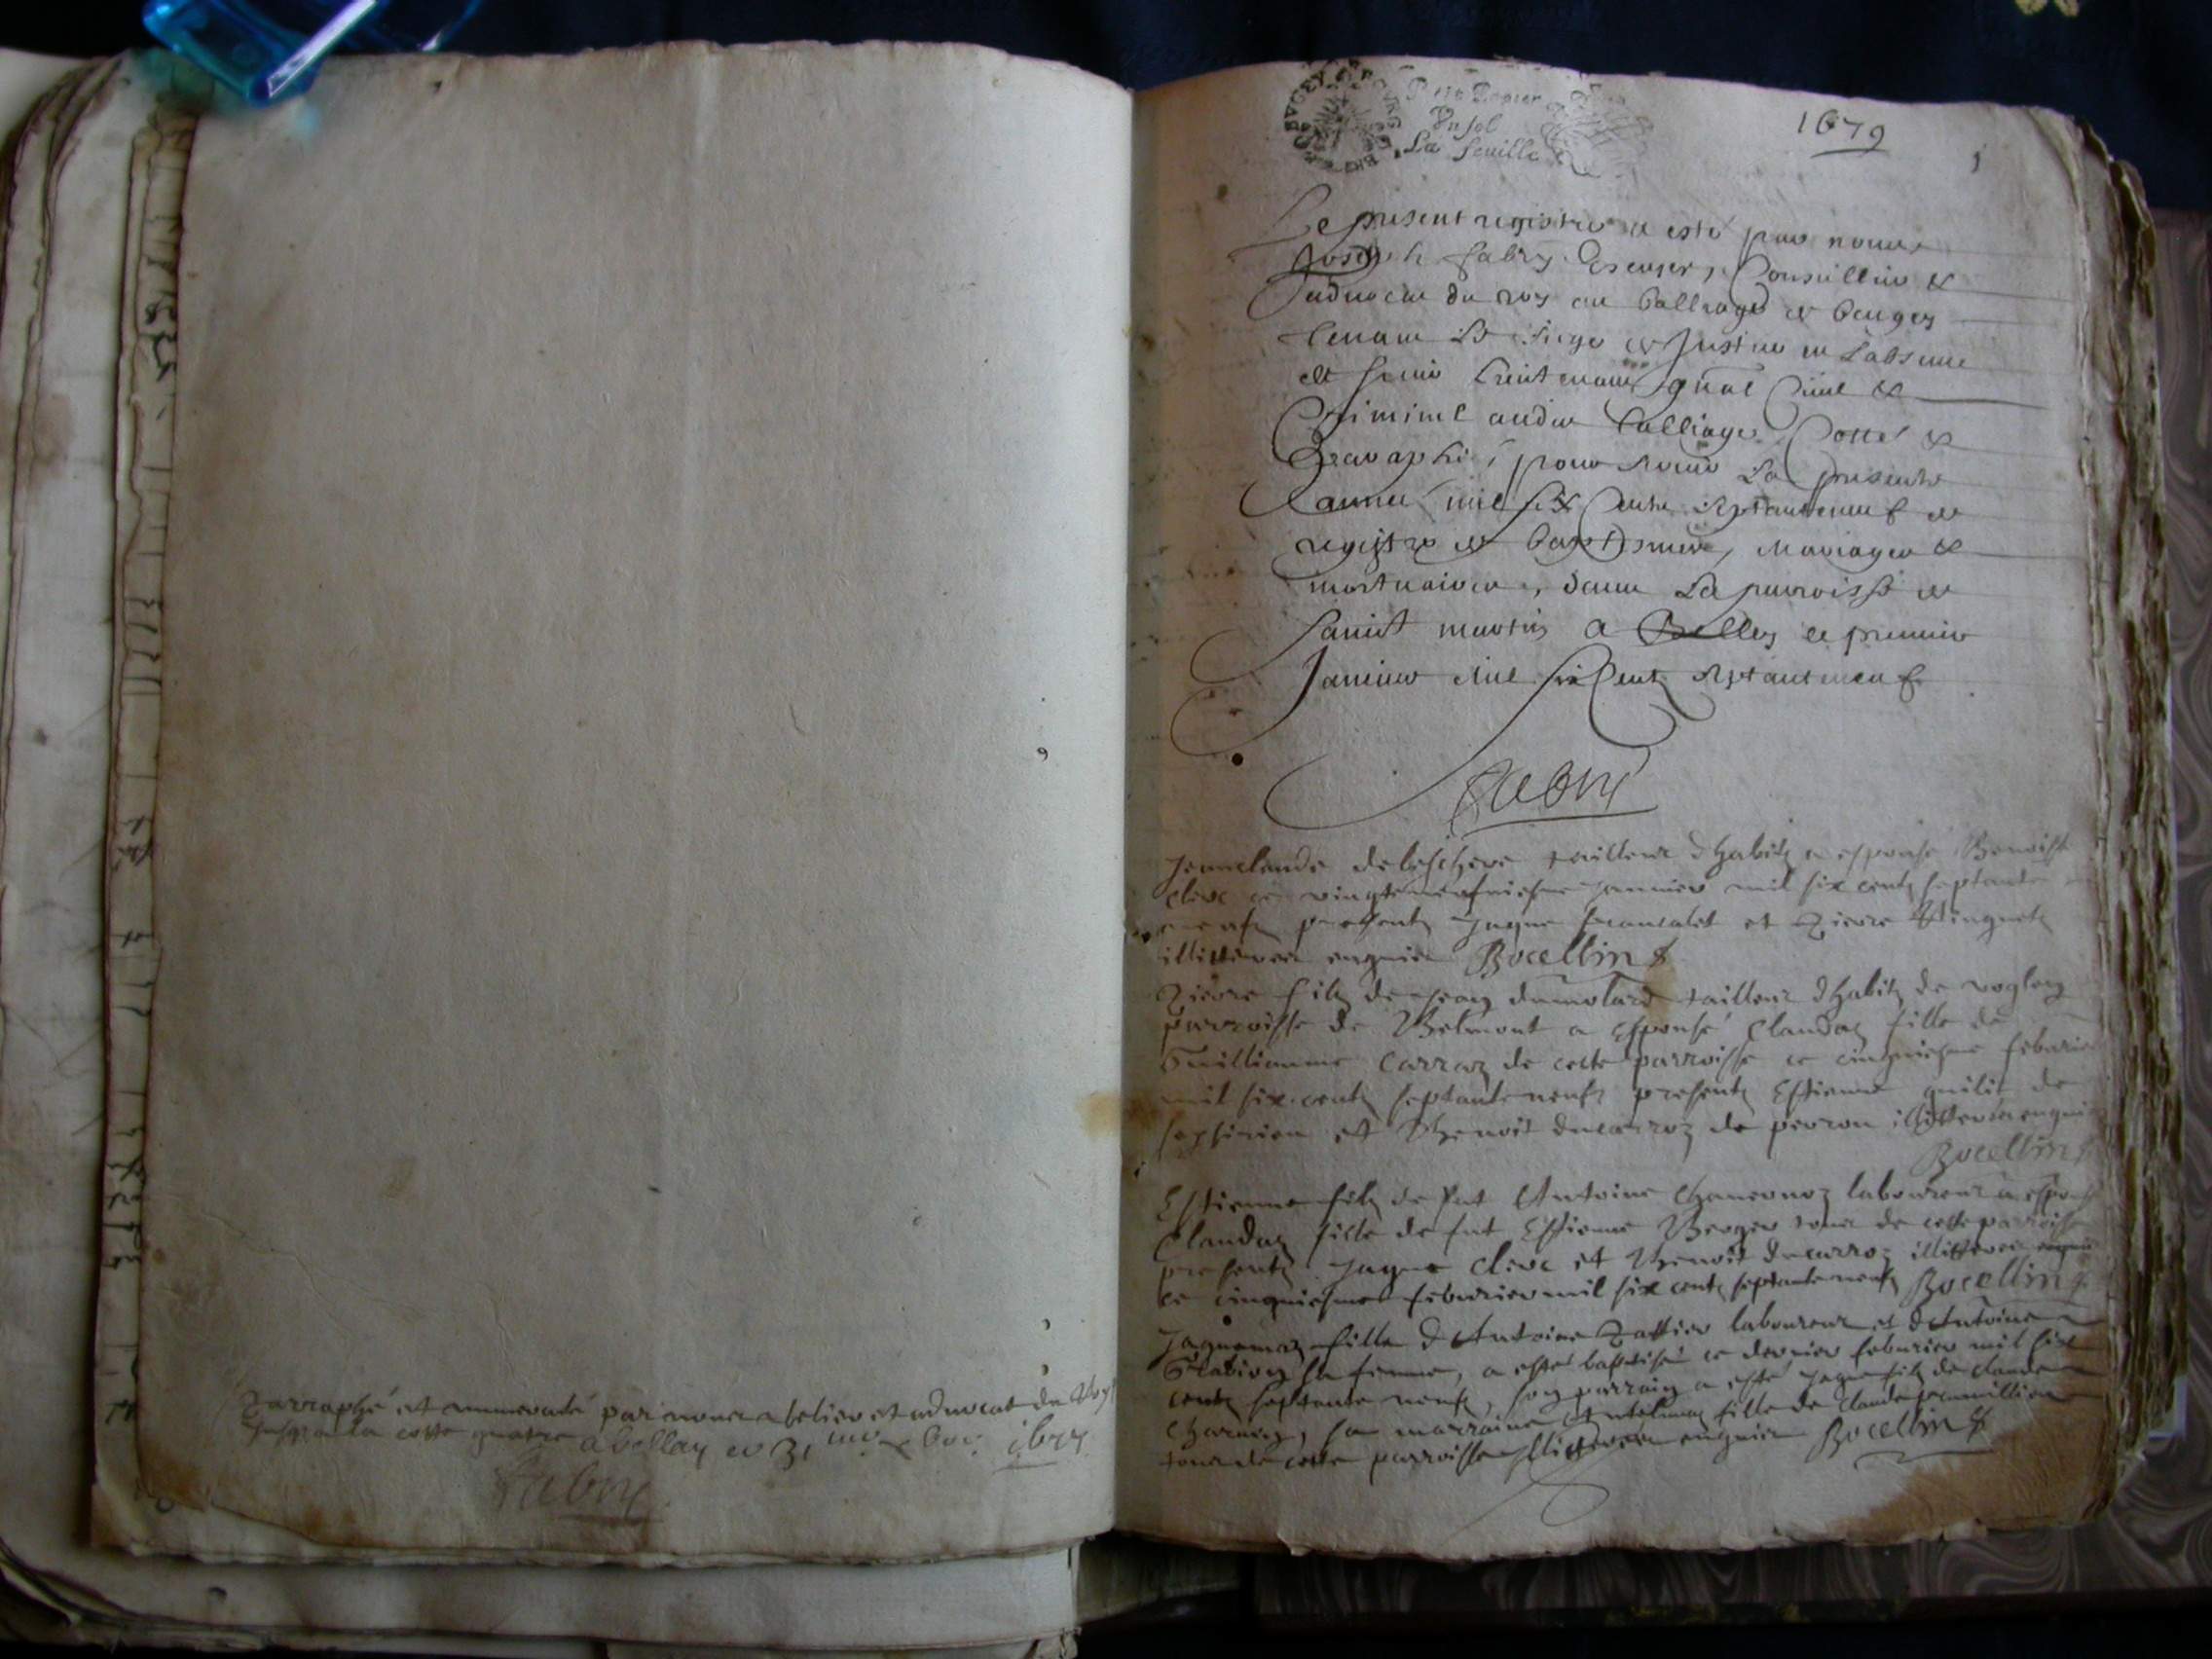 Parraphé et numeroté par nous conselier et advocat du Roy
jusqu'a la cotte quatre a bellay ce 31
Fabry
BVGEY
Petit Papier
Un sol
La feuille
1679
1
Le present registre a esté par nous
Joseph Fabry Escuyer, Conseillier &
Advocat du roy au balliage de beugey
tenant le siege de Justice en l'absence
de lieutenant gnal Civil &
Criminel audit balliage Cotté &
Paraphé, pour servir la presente
année mil six Cents septanteneuf de
registre de baptesmes, Mariages &
mortuaires, dans la parroisse de
Sainct martin a Belley ce premier
Janvier Mil six Cents septanteneuf
Fabry
Jeanclaude delescheve tailleur dhabitz a esponsé Benoist
clerc ce vingtneufviesme janvier mil six centz septante
neufz presentz Jaque et Pierre
illitterez enquis Bocellin
Pierre filz de jean dumolard tailleur dhabitz de voglen
parroisse de Belmont a esponsé Claudaz fille de
Guilliaume Carraz de cette parroisse ce cinquiesme febvrier
mil six centz septanteneufz presentz Estienne quilit de
et Benoit ducarroz de peron illitterez enquis
Bocellin
Estienne filz de fut Antoine Chanvonoz laboureur a esponsé
Claudaz fille de fut Estienne Berger tous de cette parroisse
presentz Jaque clerc et Benoit ducarroz illitterez enquis
ce cinquiesme febvrier mil six centz septanteneufz Bocellin
Jaquemaz fille d Antoine Pattier laboureur et d Antoine
sa femme, a esté baptisé ce dernier febvrier mil six
centz septante neufz, son parrain a esté Jaque filz de claude
Charvey, sa marraine Antelmaz fille de Claude
tous de cette parroisse illitterez enquis Bocellin